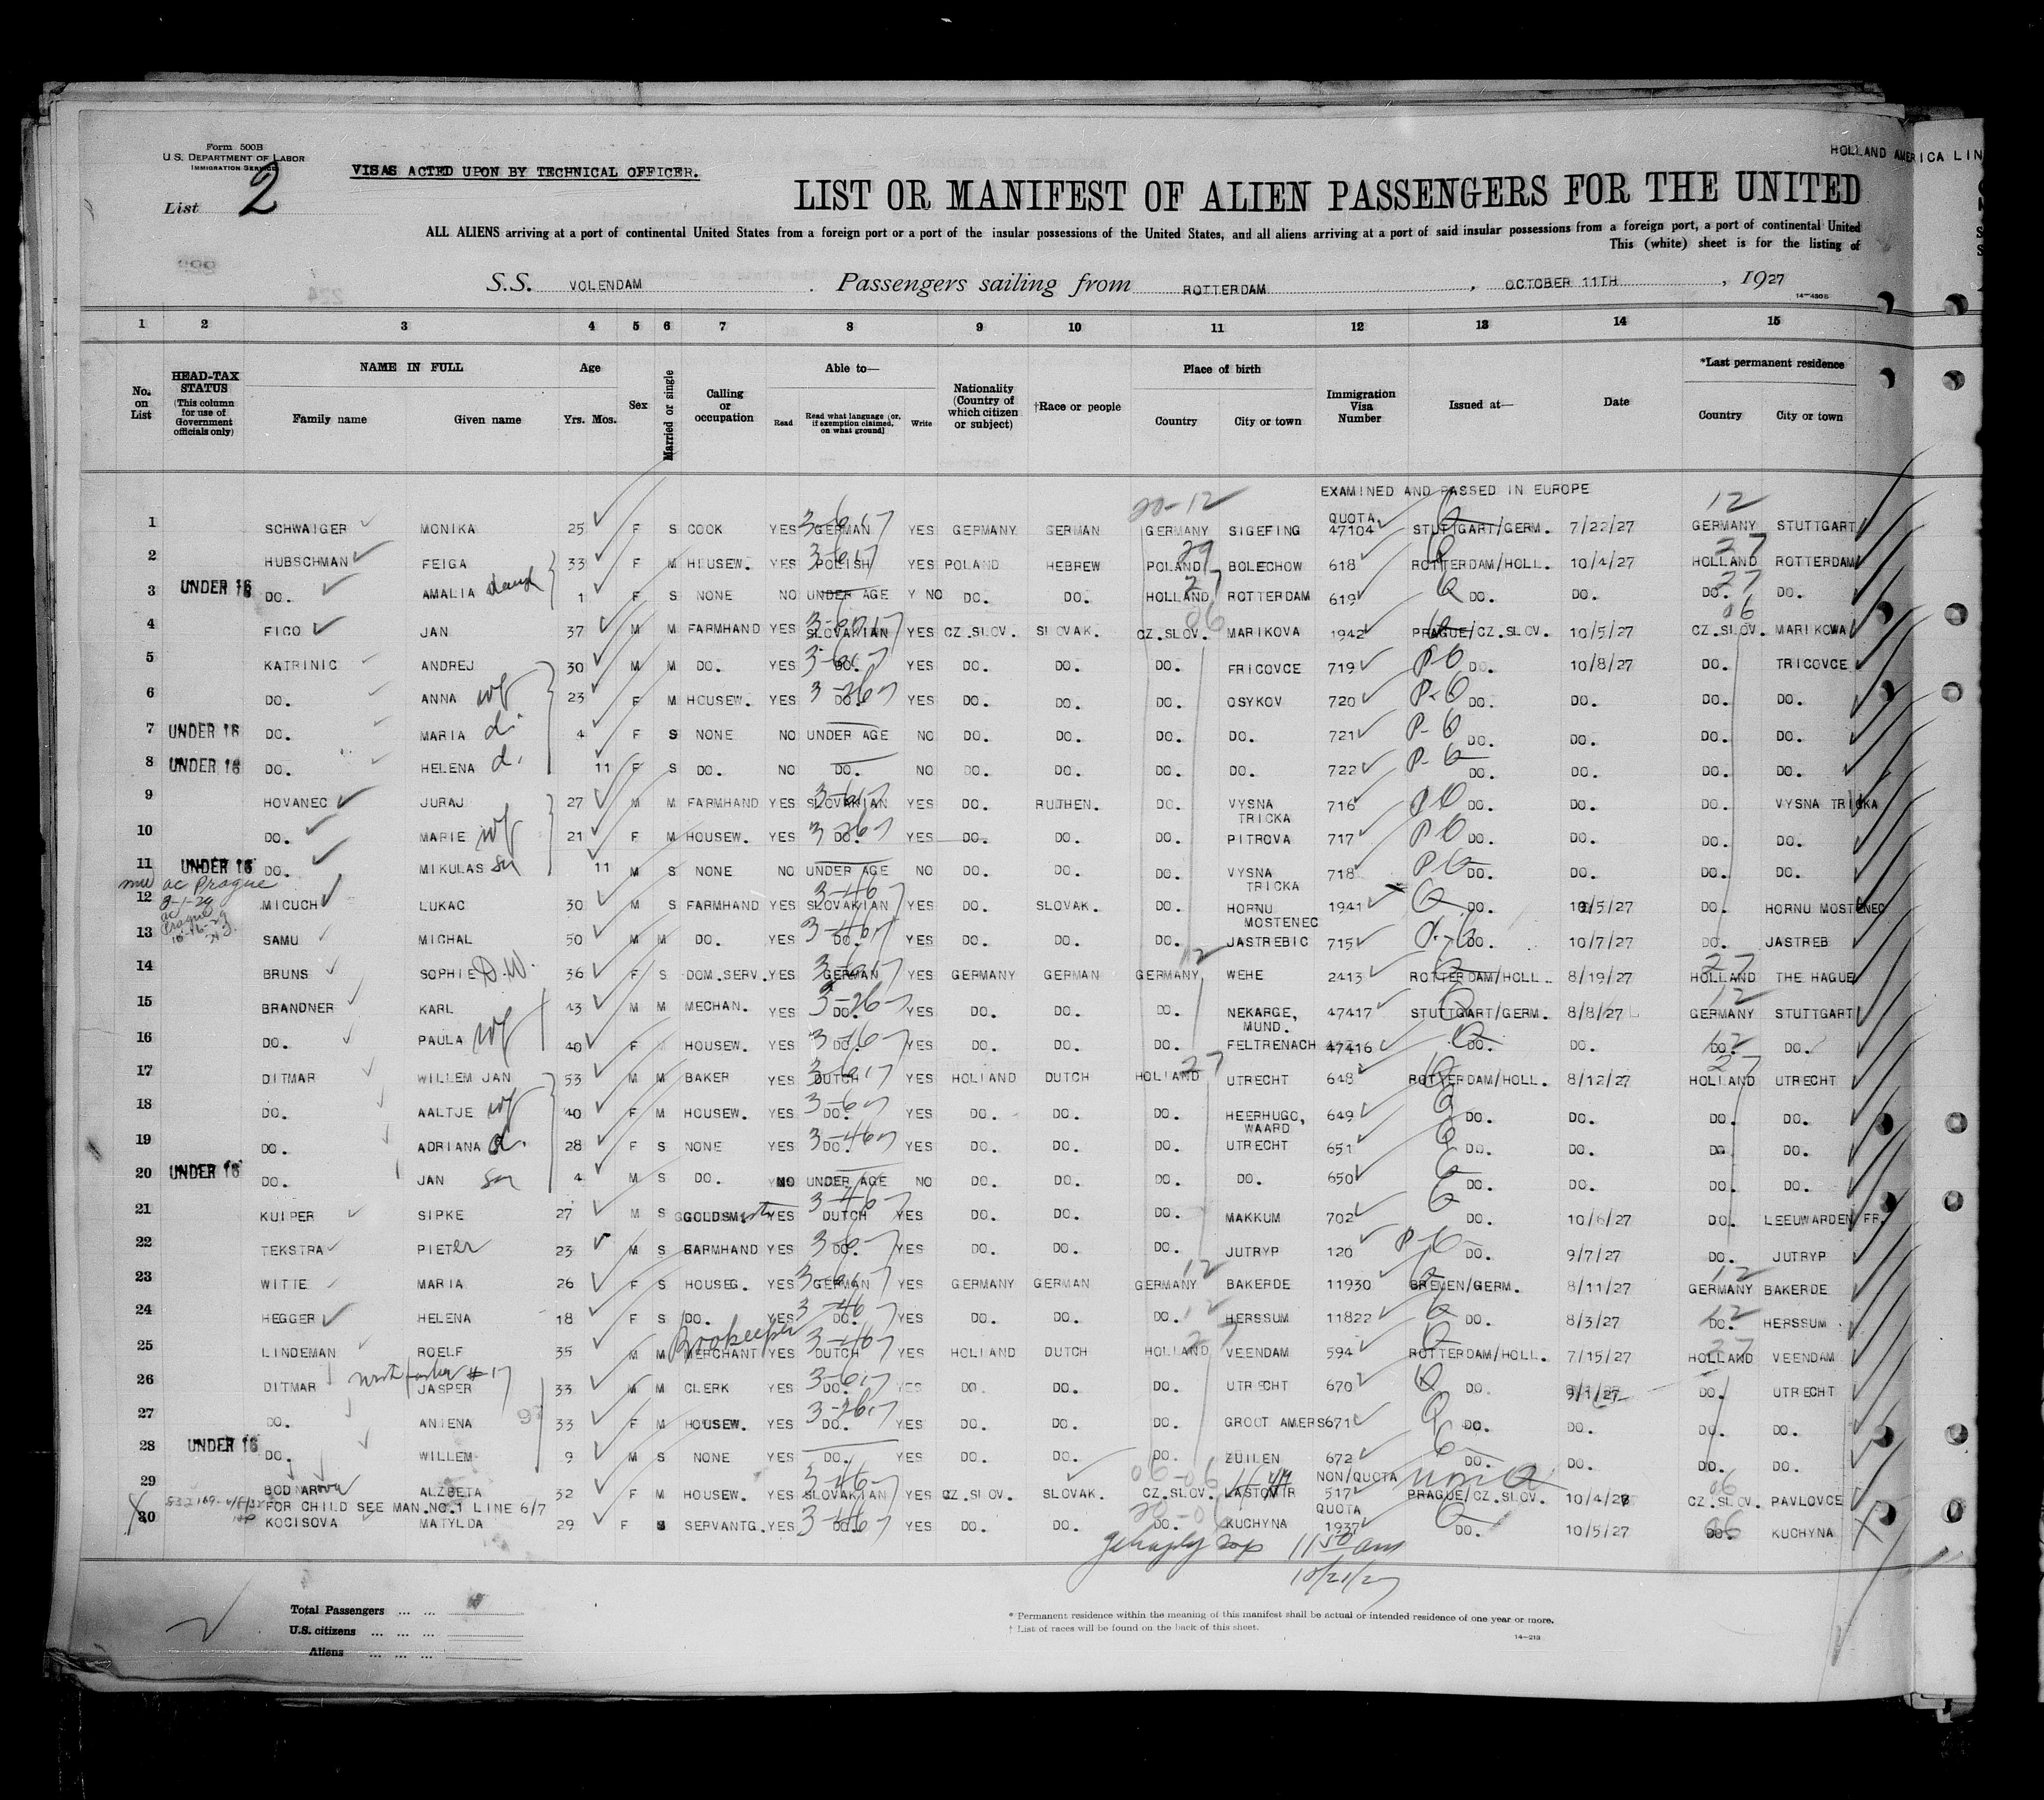 HOLLAND AMERICA LIN
Form 500B
U.S. DEPARTMENT OF LABOR
IMMIGRATION SERVICE
VISAS ACTED UPON BY TECHNICAL OFFICER.
List 2
LIST OR MANIFEST OF ALIEN PASSENGERS FOR THE UNITED
ALL ALIENS arriving at a port of continental United States from a foreign port or a port of the insular possessions of the United States, and all aliens arriving at a port of said insular possessions from a foreign port, a port of continental United
This (white) sheet is for the listing of
S.S. VOLENDAM . Passengers sailing from ROTTERDAM , OCTOBER 11TH , 1927
1 2 3 4 5 6 7 8 9 10 11 12 13 14 15
No. on List
HEAD-TAX STATUS (This column for use of Government officials only)
NAME IN FULL Family name Given name
Age Yrs. Mos.
Sex
Married or single
Calling or occupation
Able to— Read Read what language (or, if exemption claimed, on what ground) Write
Nationality (Country of which citizen or subject)
†Race or people
Place of birth Country City or town
Immigration Visa Number
Issued at—
Date
*Last permanent residence Country City or town
EXAMINED AND PASSED IN EUROPE
20-12 12
QUOTA
1 SCHWAIGER MONIKA 25 F S COOK YES GERMAN YES GERMANY GERMAN GERMANY SIGEFING 47104 STUTTGART/GERM. 7/22/27 GERMANY STUTTGART
2 HUBSCHMAN FEIGA 33 F M HOUSEW. YES POLISH YES POLAND HEBREW POLAND BOLECHOW 618 ROTTERDAM/HOLL. 10/4/27 HOLLAND ROTTERDAM
3 UNDER 16 DO. AMALIA daug 1 F S NONE NO UNDER AGE NO DO. DO. HOLLAND ROTTERDAM 619 DO. DO. DO. DO.
4 FICO JAN 37 M M FARMHAND YES SLOVAKIAN YES CZ.SLOV. SLOVAK. CZ.SLOV. MARIKOVA 1942 PRAGUE/CZ.SLOV. 10/5/27 CZ.SLOV. MARIKOWA
5 KATRINIC ANDREJ 30 M M DO. YES DO. YES DO. DO. DO. FRICOVCE 719 DO. 10/8/27 DO. TRICOVCE
6 DO. ANNA wf 23 F M HOUSEW. YES DO. YES DO. DO. DO. OSYKOV 720 DO. DO. DO. DO.
7 UNDER 16 DO. MARIA d. 4 F S NONE NO UNDER AGE NO DO. DO. DO. DO. 721 DO. DO. DO. DO.
8 UNDER 16 DO. HELENA d. 11 F S DO. NO DO. NO DO. DO. DO. DO. 722 DO. DO. DO. DO.
9 HOVANEC JURAJ 27 M M FARMHAND YES SLOVAKIAN YES DO. RUTHEN. DO. VYSNA TRICKA 716 DO. DO. DO. VYSNA TRICKA
10 DO. MARIE wf 21 F M HOUSEW. YES DO. YES DO. DO. DO. PITROVA 717 DO. DO. DO. DO.
11 UNDER 16 DO. MIKULAS sn 11 M S NONE NO UNDER AGE NO DO. DO. DO. VYSNA TRICKA 718 DO. DO. DO. DO.
ac Prague
12 MICUCH LUKAC 30 M S FARMHAND YES SLOVAKIAN YES DO. SLOVAK. DO. HORNU MOSTENEC 1941 DO. 10/5/27 DO. HORNU MOSTENEC
13 SAMU MICHAL 50 M M DO. YES DO. YES DO. DO. DO. JASTREBIC 715 DO. 10/7/27 DO. JASTREB
14 BRUNS SOPHIE D.W. 36 F S DOM.SERV. YES GERMAN YES GERMANY GERMAN GERMANY WEHE 2413 ROTTERDAM/HOLL. 8/19/27 HOLLAND THE HAGUE
15 BRANDNER KARL 43 M M MECHAN. YES DO. YES DO. DO. DO. NEKARGE, MUND. 47417 STUTTGART/GERM. 8/8/27 GERMANY STUTTGART
16 DO. PAULA wf 40 F M HOUSEW. YES DO. YES DO. DO. DO. FELTRENACH 47416 DO. DO. DO. DO.
17 DITMAR WILLEM JAN 53 M M BAKER YES DUTCH YES HOLLAND DUTCH HOLLAND UTRECHT 648 ROTTERDAM/HOLL. 8/12/27 HOLLAND UTRECHT
18 DO. AALTJE wf 40 F M HOUSEW. YES DO. YES DO. DO. DO. HEERHUGO, WAARD 649 DO. DO. DO. DO.
19 DO. ADRIANA d. 28 F S NONE YES DO. YES DO. DO. DO. UTRECHT 651 DO. DO. DO. DO.
20 UNDER 16 DO. JAN sn 4 M S DO. NO UNDER AGE NO DO. DO. DO. DO. 650 DO. DO. DO. DO.
21 KUIPER SIPKE 27 M S GOLDSMITH YES DUTCH YES DO. DO. DO. MAKKUM 702 DO. 10/6/27 DO. LEEUWARDEN FR.
22 TEKSTRA PIETer 23 M S FARMHAND YES DO. YES DO. DO. DO. JUTRYP 120 DO. 9/7/27 DO. JUTRYP
23 WITTE MARIA 26 F S HOUSEG. YES GERMAN YES GERMANY GERMAN GERMANY BAKERDE 11930 BREMEN/GERM. 8/11/27 GERMANY BAKERDE
24 HEGGER HELENA 18 F S DO. YES DO. YES DO. DO. DO. HERSSUM 11822 DO. 8/3/27 DO. HERSSUM
Bookeeper
25 LINDEMAN ROELF 35 M M MERCHANT YES DUTCH YES HOLLAND DUTCH HOLLAND VEENDAM 594 ROTTERDAM/HOLL. 7/15/27 HOLLAND VEENDAM
26 DITMAR JASPER 33 M M CLERK YES DO. YES DO. DO. DO. UTRECHT 670 DO. 9/1/27 DO. UTRECHT
27 DO. ANTENA 33 F M HOUSEW. YES DO. YES DO. DO. DO. GROOT AMERS 671 DO. DO. DO. DO.
28 UNDER 16 DO. WILLEM 9 M S NONE YES DO. YES DO. DO. DO. ZUILEN 672 DO. DO. DO. DO.
NON/QUOTA
29 BODNAROVA ALZBETA 32 F M HOUSEW. YES SLOVAKIAN YES CZ.SLOV. SLOVAK. CZ.SLOV. LASTOMIR 517 PRAGUE/CZ.SLOV. 10/4/27 CZ.SLOV. PAVLOVCE
FOR CHILD SEE MAN.NO.1 LINE 6/7
QUOTA
30 KOCISOVA MATYLDA 29 F S SERVANTG. YES DO. YES DO. DO. DO. KUCHYNA 1937 DO. 10/5/27 DO. KUCHYNA
11 50 am
10/21/27
Total Passengers ... ...
U.S. citizens ... ... ...
Aliens ... ... ...
* Permanent residence within the meaning of this manifest shall be actual or intended residence of one year or more.
† List of races will be found on the back of this sheet.
14—213